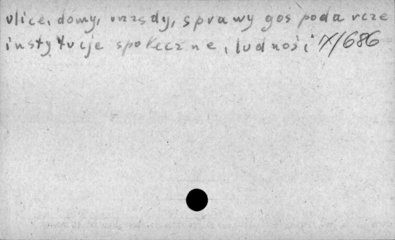 ulice, domy, urzędy, sprawy gospodarcze
instytucje społeczne, ludności IX/686